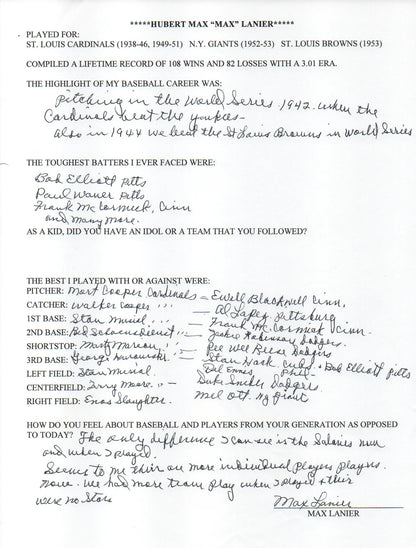 *****HUBERT MAX "MAX" LANIER*****
PLAYED FOR:
ST. LOUIS CARDINALS (1938-46, 1949-51) N.Y. GIANTS (1952-53) ST. LOUIS BROWNS (1953)
COMPILED A LIFETIME RECORD OF 108 WINS AND 82 LOSSES WITH A 3.01 ERA.
THE HIGHLIGHT OF MY BASEBALL CAREER WAS:
Pitching in the World Series 1942 when the
Cardinals beat the yankees-
also in 1944 we beat the St Louis Browns in World Series
THE TOUGHEST BATTERS I EVER FACED WERE:
Bob Elliott Pitts
Paul Waner Pitts
Frank McCormick, Cinn
and many more.
AS A KID, DID YOU HAVE AN IDOL OR A TEAM THAT YOU FOLLOWED?
THE BEST I PLAYED WITH OR AGAINST WERE:
PITCHER: Mort Cooper Cardinals = Ewell Blackwell Cinn,
CATCHER: Walker Cooper " " - Al Lopez Pittsburg
1ST BASE: Stan Musial " " - Frank McCormick Cinn.
2ND BASE: Red Schoendienst " " - Jackie Robinson Dodgers.
SHORTSTOP: Marty Marion " " - Pee Wee Reese Dodgers
3RD BASE: George Kurowski - Stan Hack Cubs + Bob Elliott Pitts
LEFT FIELD: Stan Musial Del Ennis Phil
CENTERFIELD: Terry Moore - Duke Snider Dodgers
RIGHT FIELD: Enos Slaughter. Mel Ott Ny Giant
HOW DO YOU FEEL ABOUT BASEBALL AND PLAYERS FROM YOUR GENERATION AS OPPOSED
TO TODAY? The only difference I can see is the Salaries now
and when I played.
Seems to me their are more individual players players
now. We had more team play when I played + their
were no Stars
Max Lanier
MAX LANIER